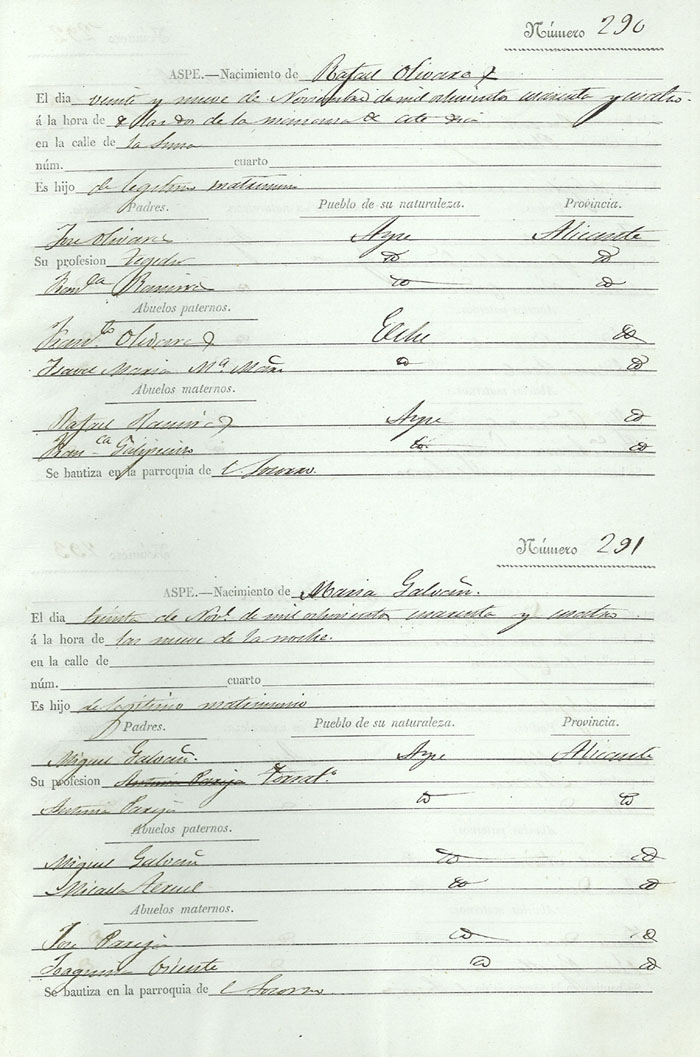 Número 290
ASPE.—Nacimiento de Rafael Olivares
El dia veinte y nueve de Noviembre de mil ochocientos cuarenta y cuatro.
á la hora de las dos de la mañana de este dia
en la calle de la
núm. cuarto
Es hijo de legitimo matrimonio
Padres. Pueblo de su naturaleza. Provincia.
Jose Olivares Aspe Alicante
Su profesion Tejedor id id
Fran.ca Ramirez id id
Abuelos paternos.
Fran.co Olivares Elche id
Isabel Maria M.ª id id
Abuelos maternos.
Rafael Ramirez Aspe id
Fran.ca id id
Se bautiza en la parroquia de el Socorro.
Número 291
ASPE.—Nacimiento de Maria Galvañ.
El dia treinta de Nov.e de mil ochocientos cuarenta y cuatro
á la hora de las nueve de la noche.
en la calle de
núm. cuarto
Es hijo de legitimo matrimonio
Padres. Pueblo de su naturaleza. Provincia.
Miguel Galvañ. Aspe Alicante
Su profesion Antonia Pareja Jornal.o
Antonia Pareja id id
Abuelos paternos.
Miguel Galvañ id id
Micaela id id
Abuelos maternos.
Jose Pareja id id
Joaquina Vicente id id
Se bautiza en la parroquia de el Socorro